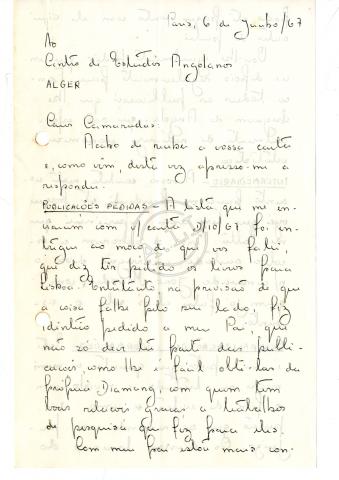 Paris, 6 de Junho/67
Ao
Centro de Estudos Angolanos
ALGER
Caros Camaradas:
Acabo de receber a vossa carta
e, como vêem, desta vez apresso-me a
responder.
PUBLICAÇÕES PEDIDAS - A lista que me en-
viaram com v/ carta /10/67 foi en-
tregue ao moço de que vos falei,
que diz ter pedido os livros para
Lisboa. Entretanto na previsão de que
a coisa falhe pelo seu lado, fiz
idêntico pedido a meu Pai, que
não só deve ter parte das publi-
cações, como lhe é fácil obtê-las da
própria Diamang, com quem tem
boas relações graças a trabalhos
de pesquisa que fez para eles.
Com meu pai estou mais con-